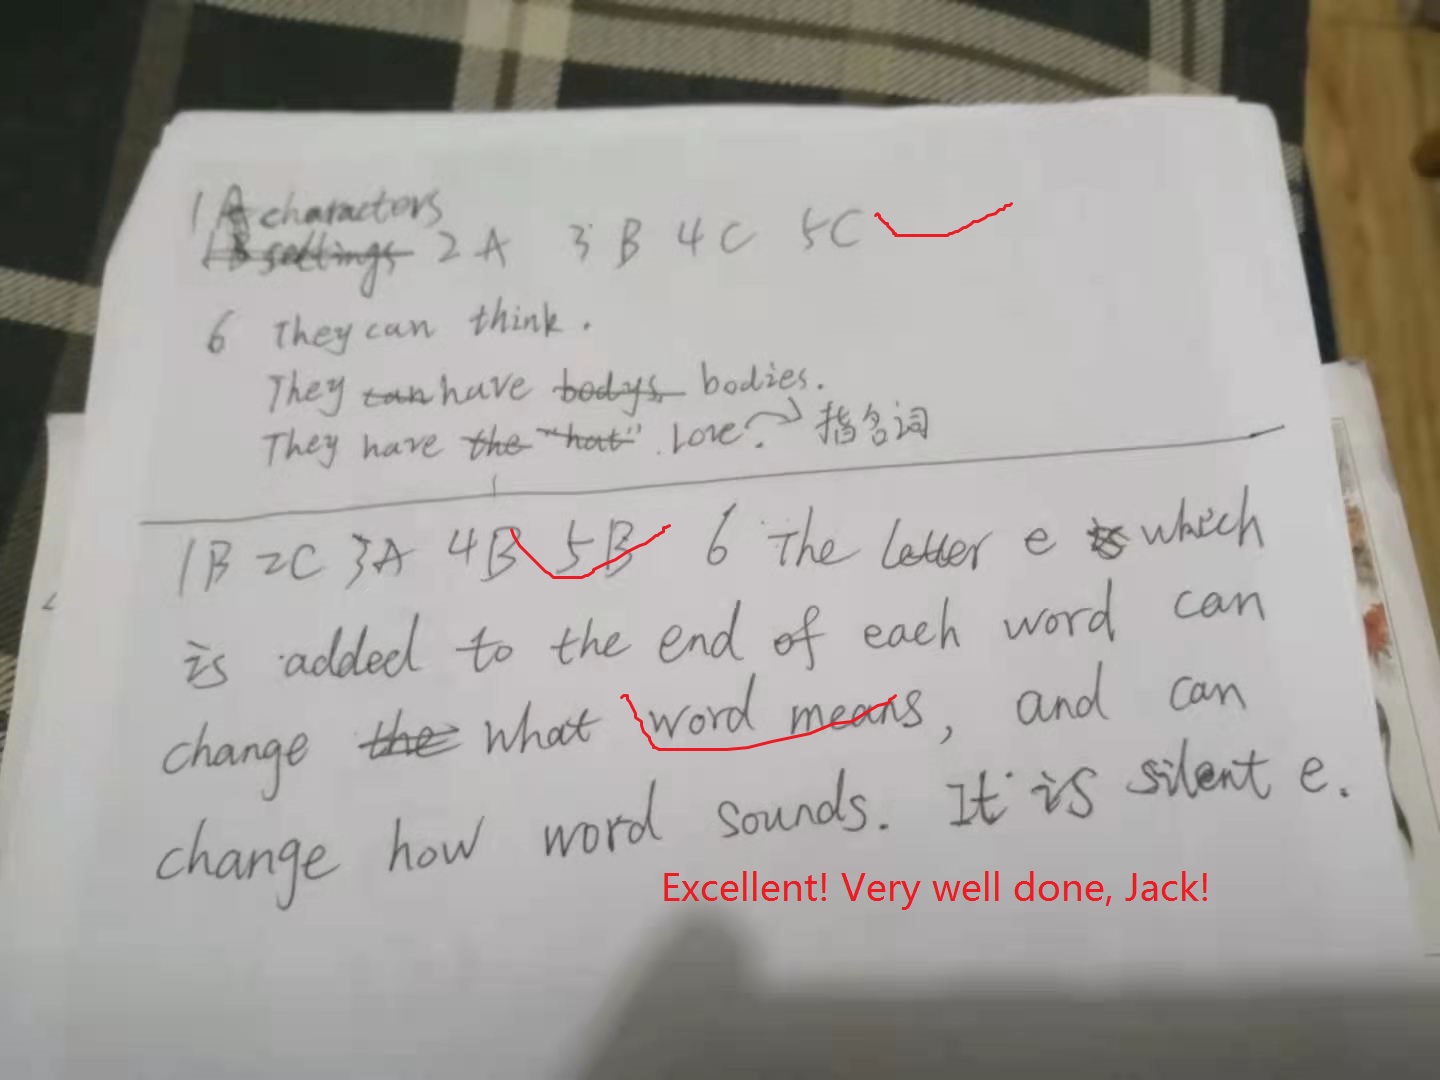 1 A charactors
1 B settings 2 A 3 B 4 C 5C
6 They can think.
They can have bodys bodies.
They have the "hat". Love. 指名词
1B 2C 3A 4B 5B 6 The letter e is which
is added to the end of each word can
change the what word means, and can
change how word sounds. It is silent e.
Excellent! Very well done, Jack!